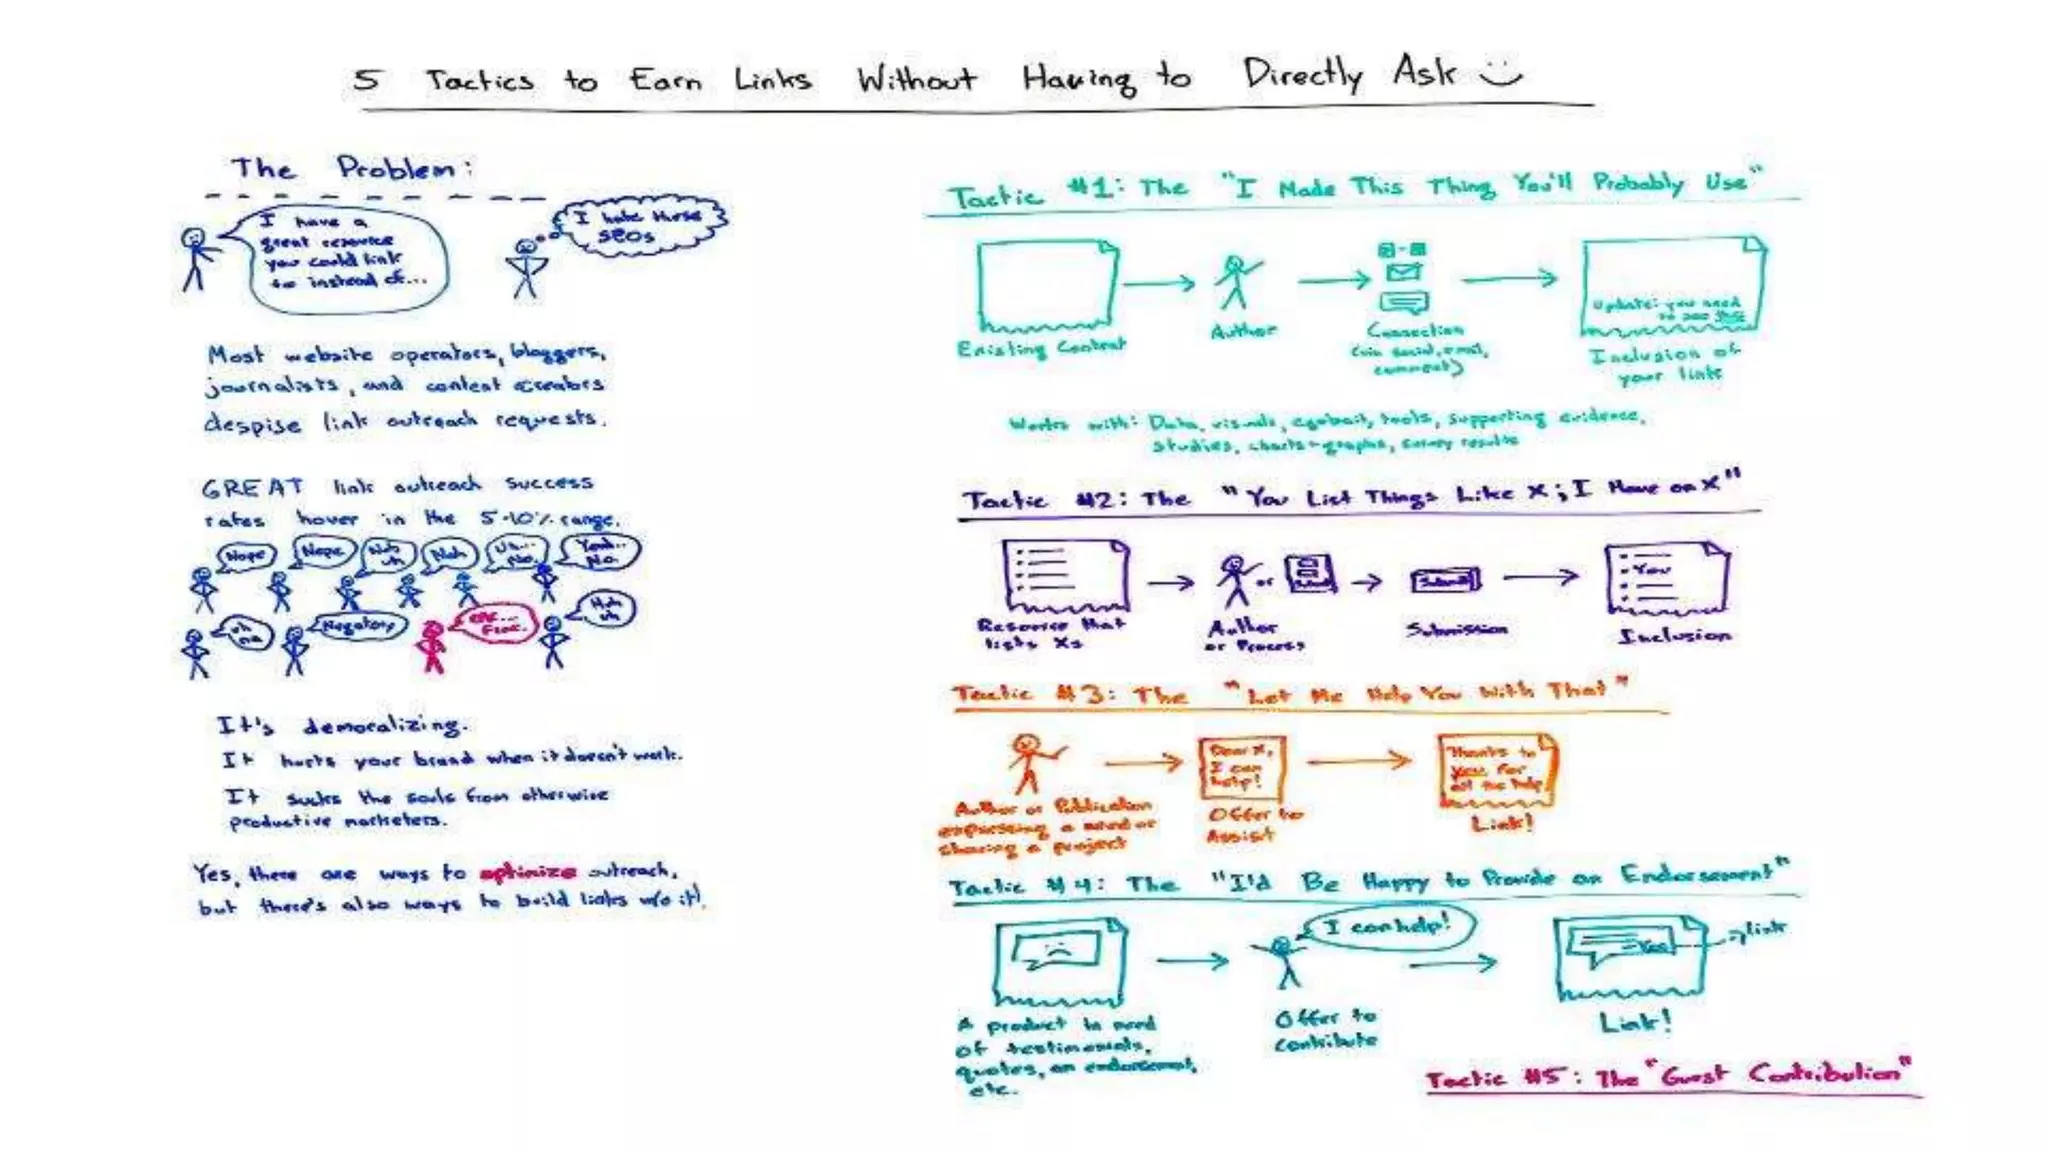 5 Tactics to Earn Links Without Having to Directly Ask
The Problem:
I have a
great resource
you could link
to instead of...
I hate these
SEOs
Most website operators, bloggers,
journalists, and content creators
despise link outreach requests.
GREAT link outreach success
rates hover in the 5-10% range.
Nope
Nope
Nuh
uh
Nah
Uh...
No.
Yeah...
No.
Uh
no
Negatory
OK...
Fine.
Nuh
uh
It's demoralizing.
It hurts your brand when it doesn't work.
It sucks the souls from otherwise
productive marketers.
Yes, there are ways to optimize outreach,
but there's also ways to build links w/o it!
Tactic #1: The "I Made This Thing You'll Probably Use"
Existing Content
Author
Connection
(via social, email,
comment)
Update: you need
to see this
Inclusion of
your link
Works with: Data, visuals, egobait, tools, supporting evidence,
studies, charts + graphs, survey results
Tactic #2: The "You List Things Like X; I Have an X"
Resource that
lists Xs
or
Submit
Author
or Process
Submit
Submission
You
Inclusion
Tactic #3: The "Let Me Help You With That"
Author or Publication
expressing a need or
sharing a project
Dear X,
I can
help!
Offer to
Assist
Thanks to
you for
all the help
Link!
Tactic #4: The "I'd Be Happy to Provide an Endorsement"
A product in need
of testimonials,
quotes, an endorsement,
etc.
I can help!
Offer to
contribute
-You
link
Link!
Tactic #5: The "Guest Contribution"